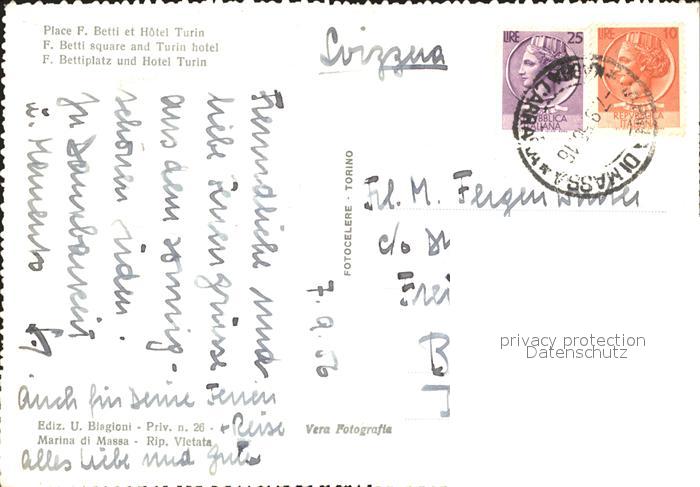 Place F. Betti et Hôtel Turin
F. Betti square and Turin hotel
F. Bettiplatz und Hotel Turin
Svizzera
LIRE 25
REPUBBLICA
ITALIANA
LIRE 10
REPUBBLICA
ITALIANA
DI MASSA
CARRA
Freundliche und
liebe Feriengrüsse
aus dem sonnig-
schönen Süden.
In Dankbarkeit
u. Memento
7.9.56
FOTOCELERE - TORINO
Frl. M. Fergen
c/o
privacy protection
Datenschutz
Auch für Deine Ferien
- Reise
alles liebe und gute
Ediz. U. Biagioni - Priv. n. 26 -
Marina di Massa - Rip. Vietata
Vera Fotografia